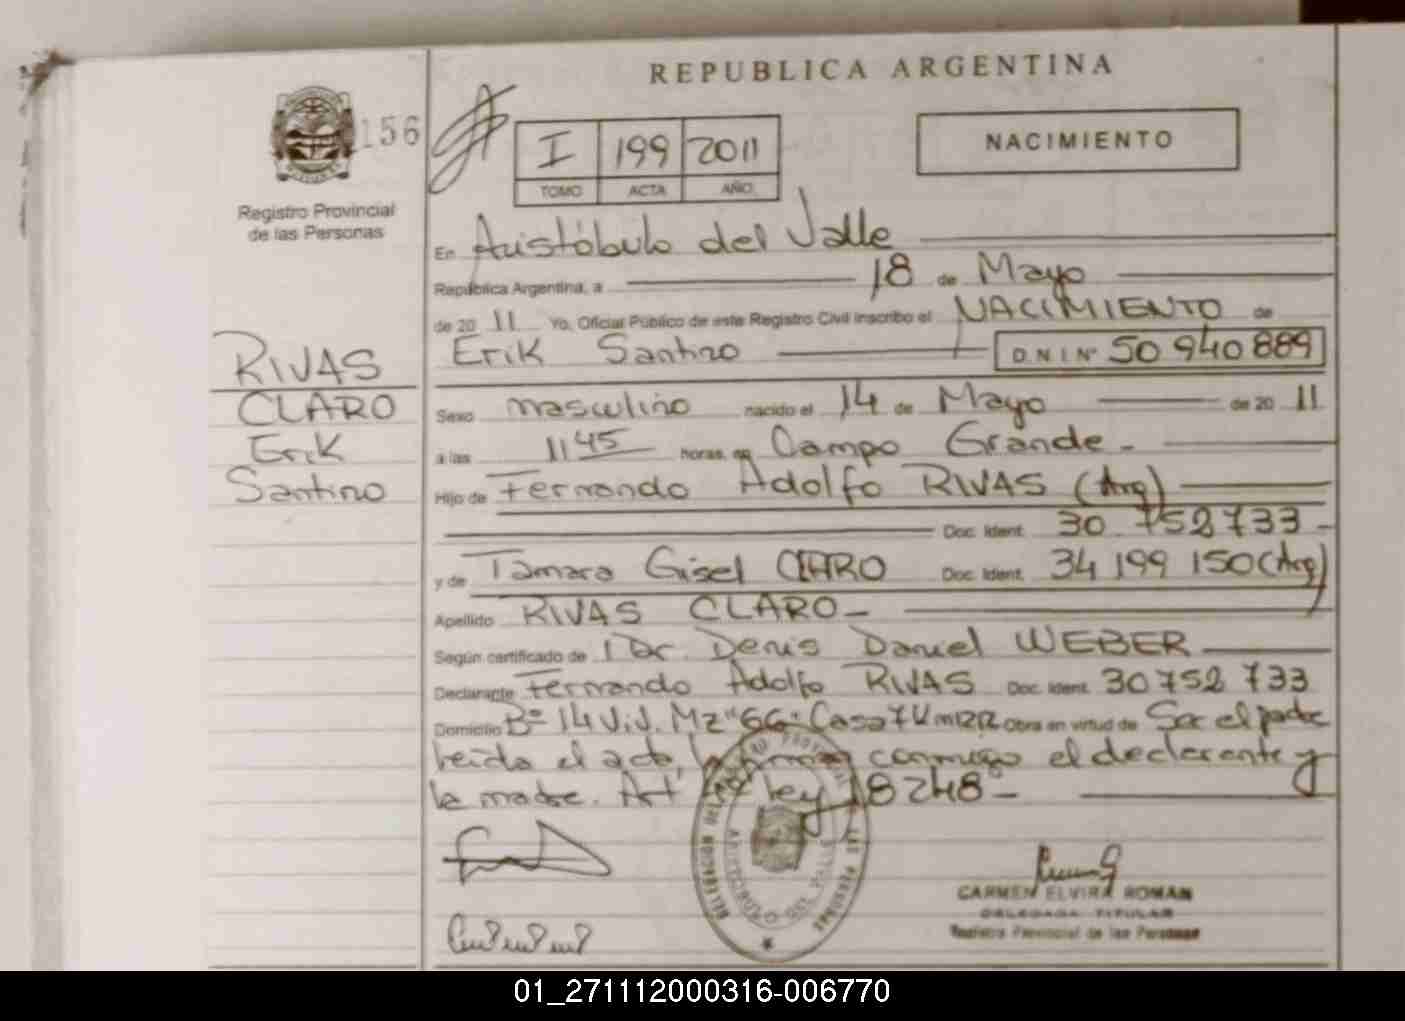 REPUBLICA ARGENTINA
156
I 199 2011
TOMO ACTA AÑO
NACIMIENTO
Registro Provincial
de las Personas
En Aristóbulo del Valle
República Argentina, a 18 de Mayo
de 20 11 Yo, Oficial Público de este Registro Civil inscribo el NACIMIENTO de
Erik Santino D.N.I. Nº 50 940 889
RIVAS
CLARO
Erik
Santino
Sexo masculino nacido el 14 de Mayo de 20 11
a las 11 45 horas, en Campo Grande -
Hijo de Fernando Adolfo RIVAS (Arg)
Doc. Ident. 30 752 733 -
y de Tamara Gisel CLARO Doc. Ident. 34 199 150 (Arg)
Apellido RIVAS CLARO -
Según certificado de Dr. Denis Daniel WEBER
Declarante Fernando Adolfo RIVAS Doc. Ident. 30 752 733
Domicilio Bº 14 Viv. Mz "6G" Casa 7 Obra en virtud de Ser el padre
leída el acta, la firma conmigo el declarante y
la madre. Art ley 18248 -
ARISTOBULO DEL VALLE
CARMEN ELVIRA ROMAN
DELEGADA TITULAR
Registro Provincial de las Personas
01_271112000316-006770